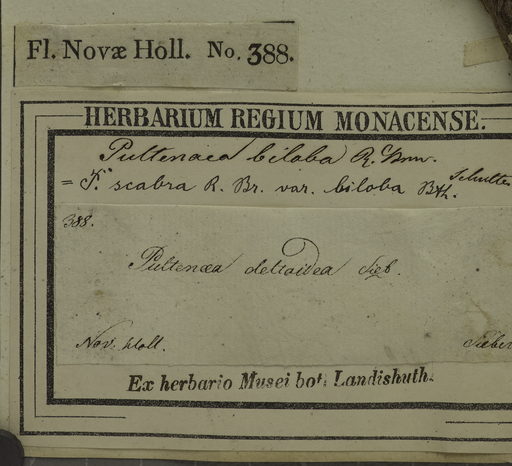 Fl. Novæ Holl. No. 388.
HERBARIUM REGIUM MONACENSE.
Pultenaea biloba R. Brow.
= P. scabra R. Br. var. biloba Bth.
388.
Pultenæa deltoidea Sieb.
Nov. Holl. Sieber
Ex herbario Musei bot. Landishuth.